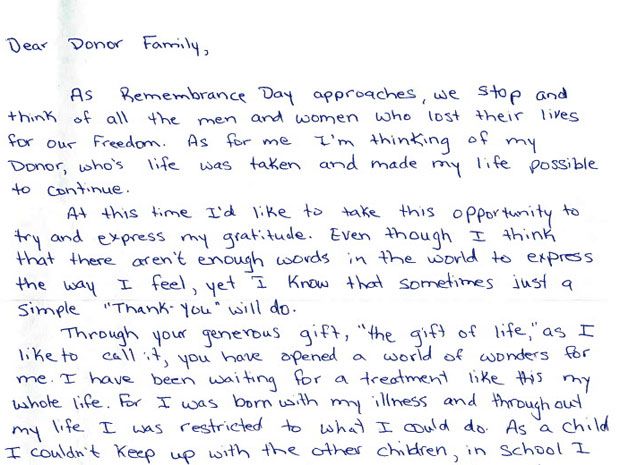 Dear Donor Family,
As Remembrance Day approaches, we stop and
think of all the men and women who lost their lives
for our Freedom. As for me I'm thinking of my
Donor, who's life was taken and made my life possible
to continue.
At this time I'd like to take this opportunity to
try and express my gratitude. Even though I think
that there aren't enough words in the world to express
the way I feel, yet I know that sometimes just a
simple "Thank-you" will do.
Through your generous gift, "the gift of life," as I
like to call it, you have opened a world of wonders for
me. I have been waiting for a treatment like this my
whole life. For I was born with my illness and throughout
my life I was restricted to what I could do. As a child
I couldn't keep up with the other children, in school I